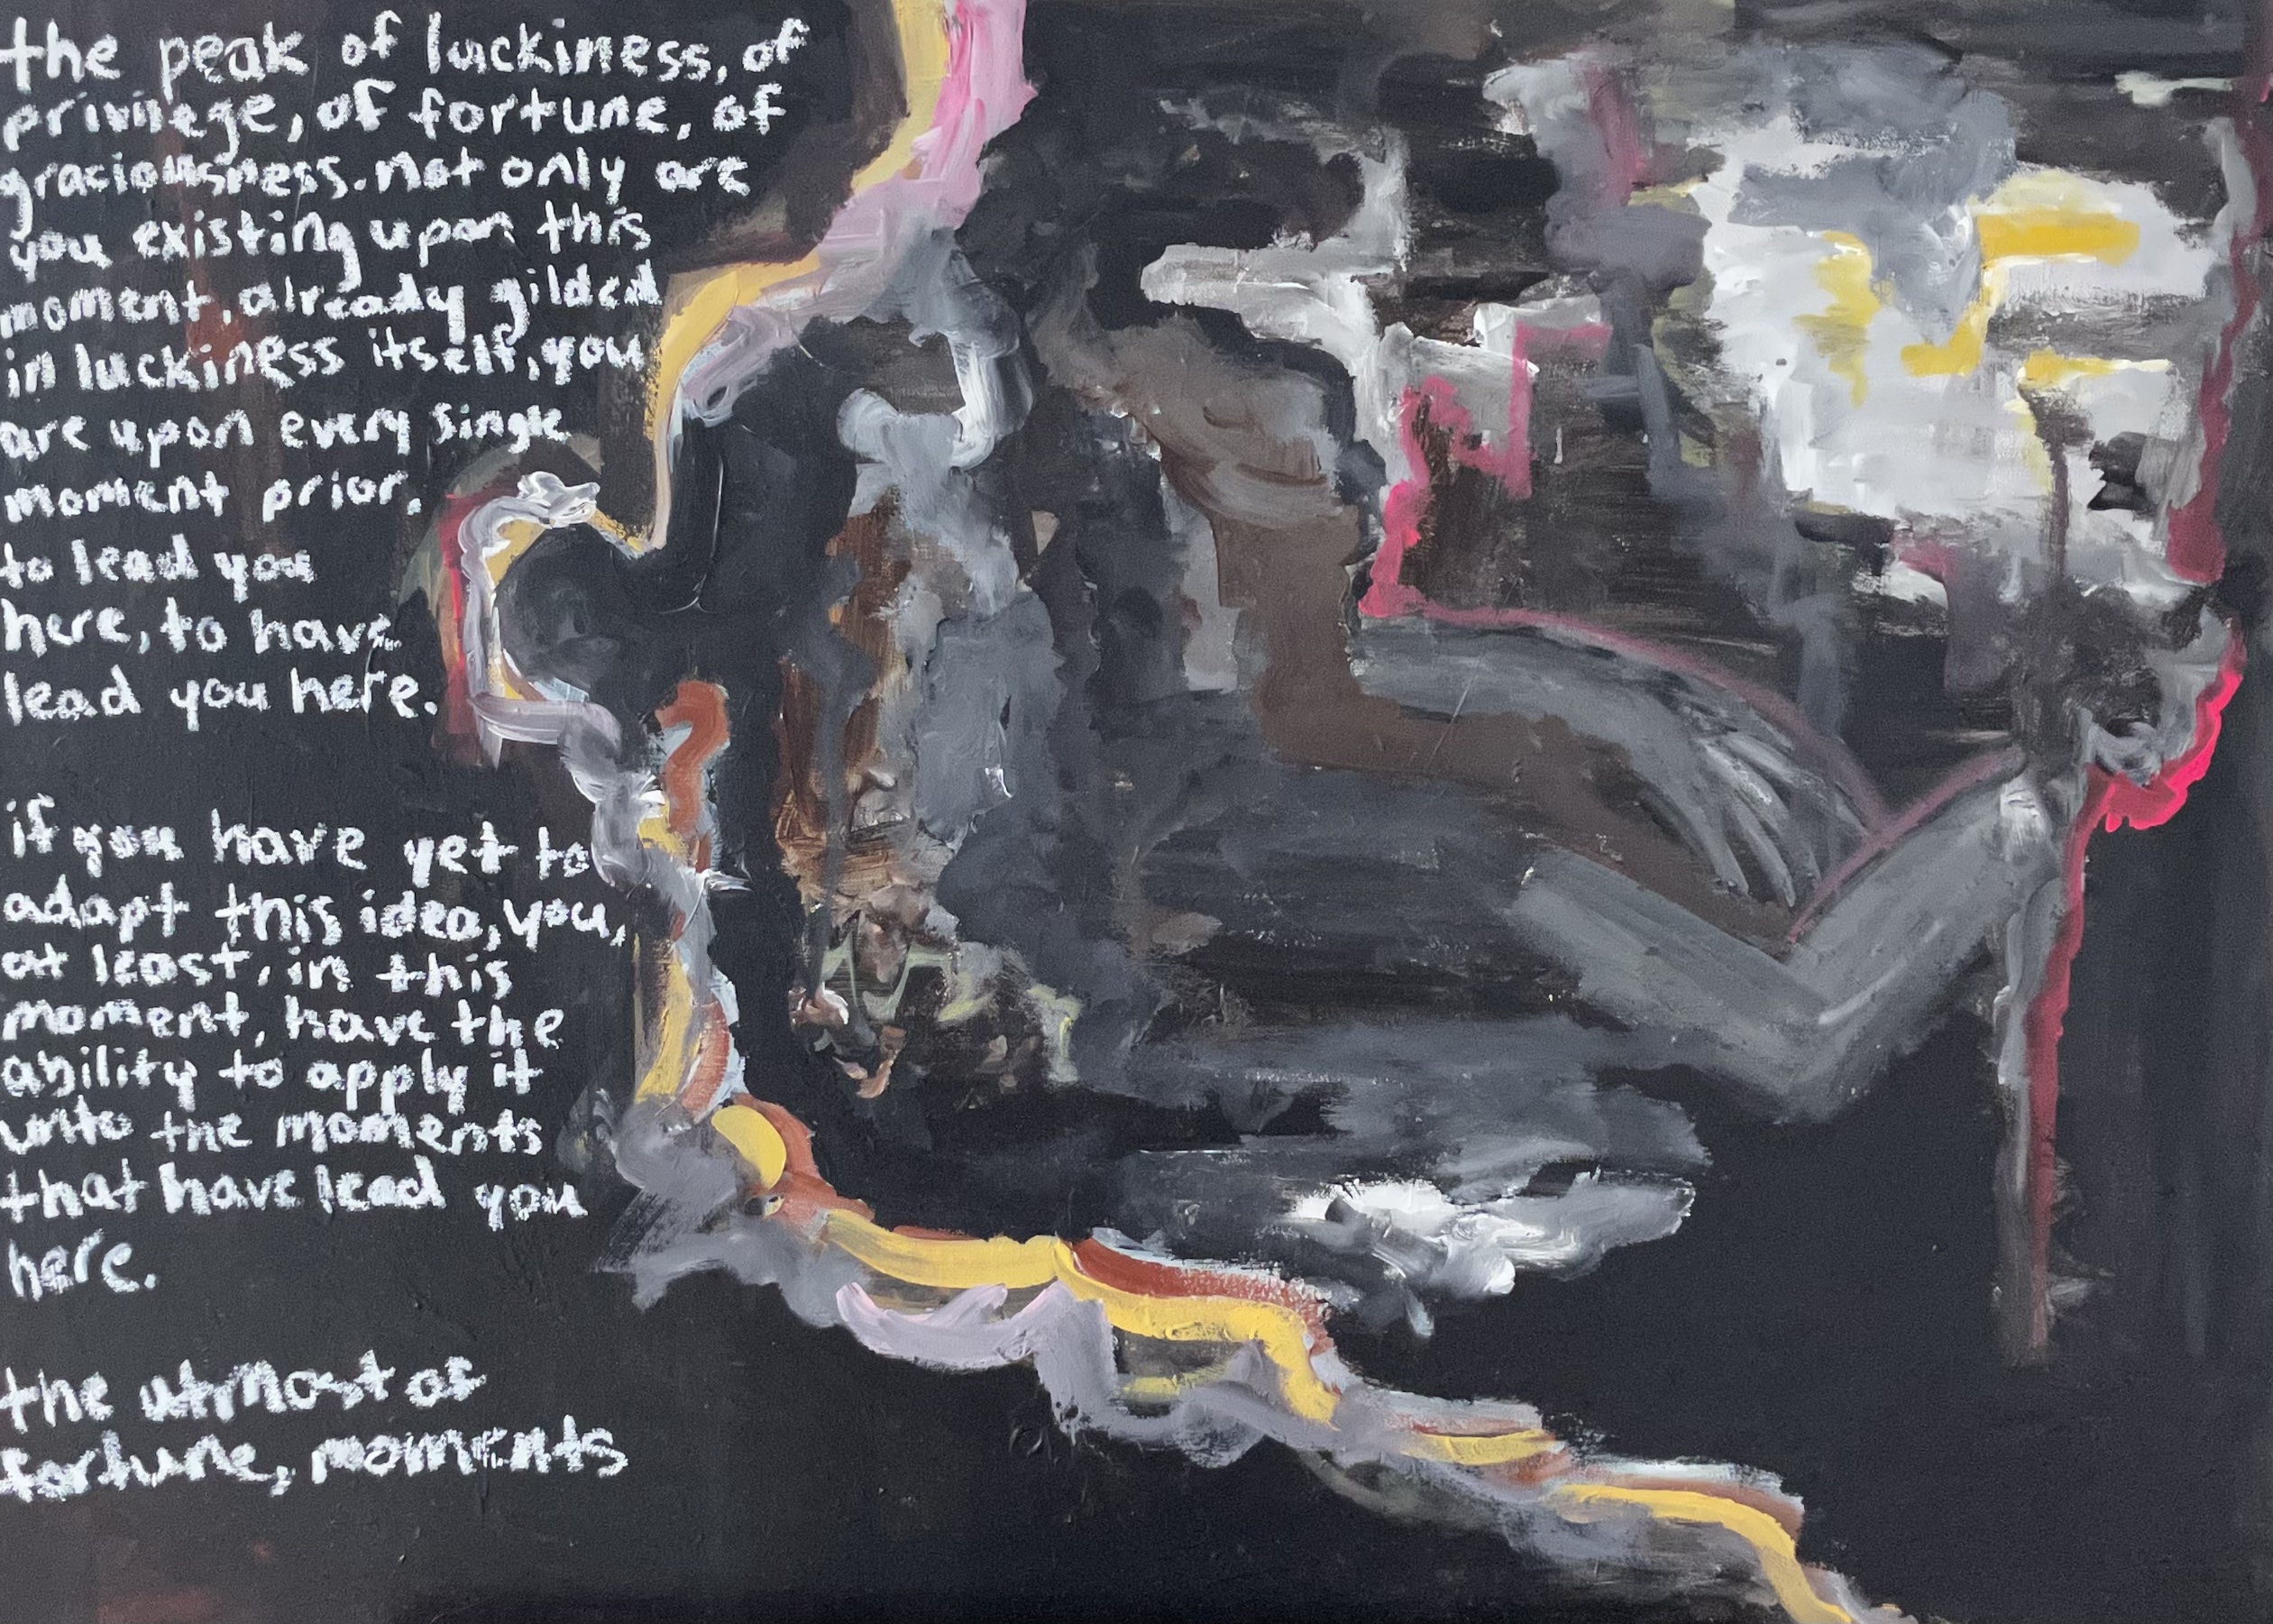 the peak of luckiness, of
privilege, of fortune, of
graciousness. not only are
you existing upon this
moment, already gilded
in luckiness itself, you
are upon every single
moment prior,
to lead you
here, to have
lead you here.
if you have yet to
adapt this idea, you,
at least, in this
moment, have the
ability to apply it
unto the moments
that have lead you
here.
the utmost of
fortune, moments